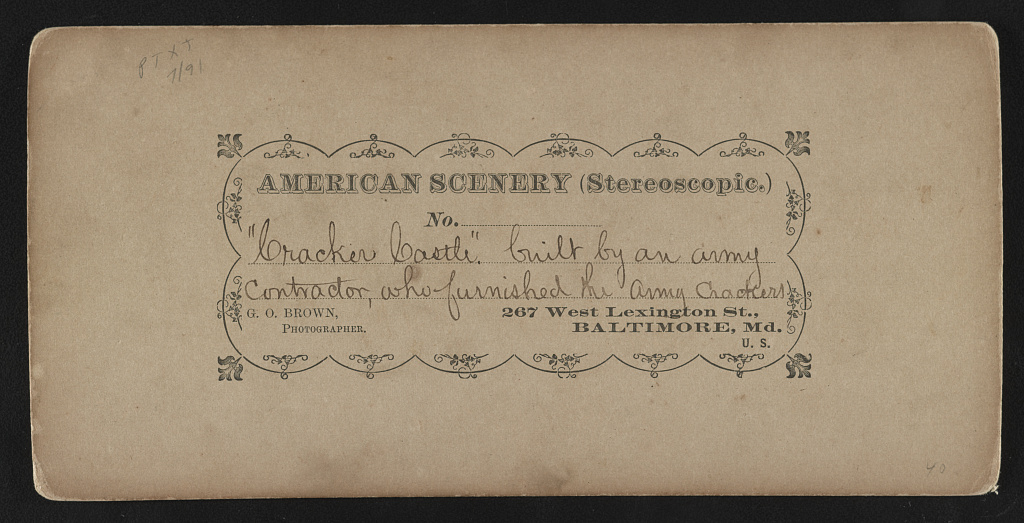 P T X T
7/91
AMERICAN SCENERY (Stereoscopic.)
No.
"Cracker Castle". built by an army
Contractor, who furnished the Army Crackers.
G. O. BROWN,
PHOTOGRAPHER.
267 West Lexington St.,
BALTIMORE, Md.
U. S.
40